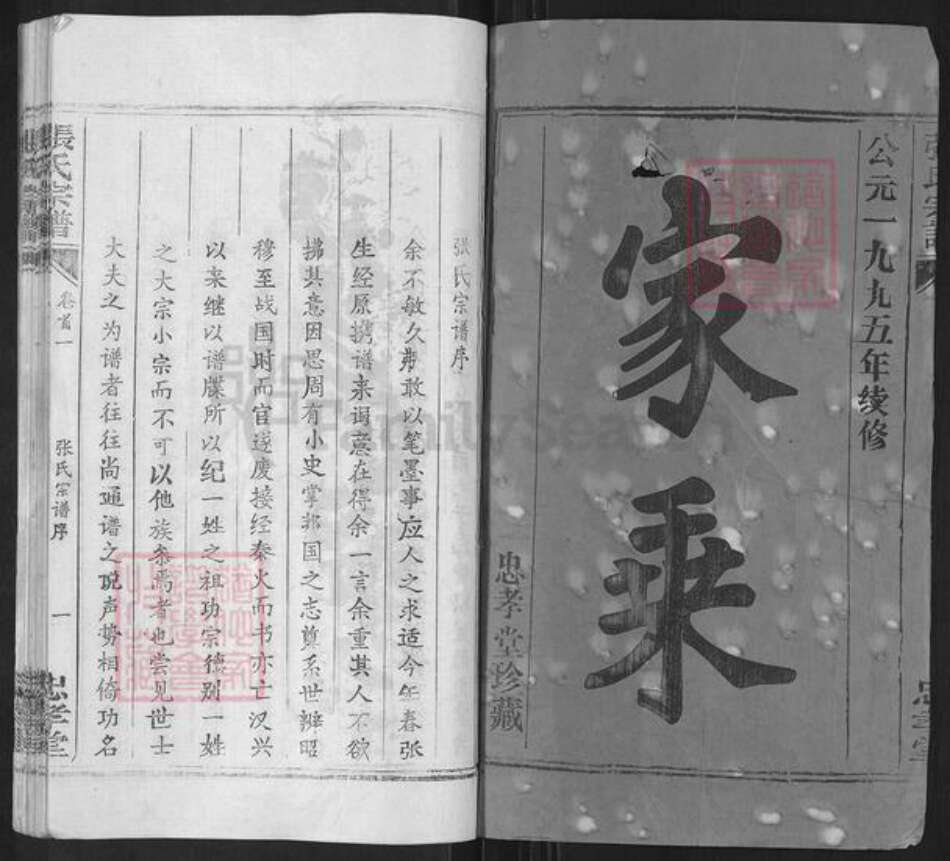 公元一九九五年续修
家乘
忠孝堂珍藏
张氏宗谱序
余不敏久弗敢以笔墨事应人之求适今年春张
生经原携谱来谒意在得余一言余重其人不欲
拂其意因思周有小史掌邦国之志奠系世辨昭
穆至战国时而官遂废接经秦火而书亦亡汉兴
以来继以谱牒所以纪一姓之祖功宗德别一姓
之大宗小宗而不可以他族参焉者也尝见世士
大夫之为谱者往往尚通谱之说声势相倚功名
張氏宗譜
卷首一
张氏宗谱序
一
忠孝堂